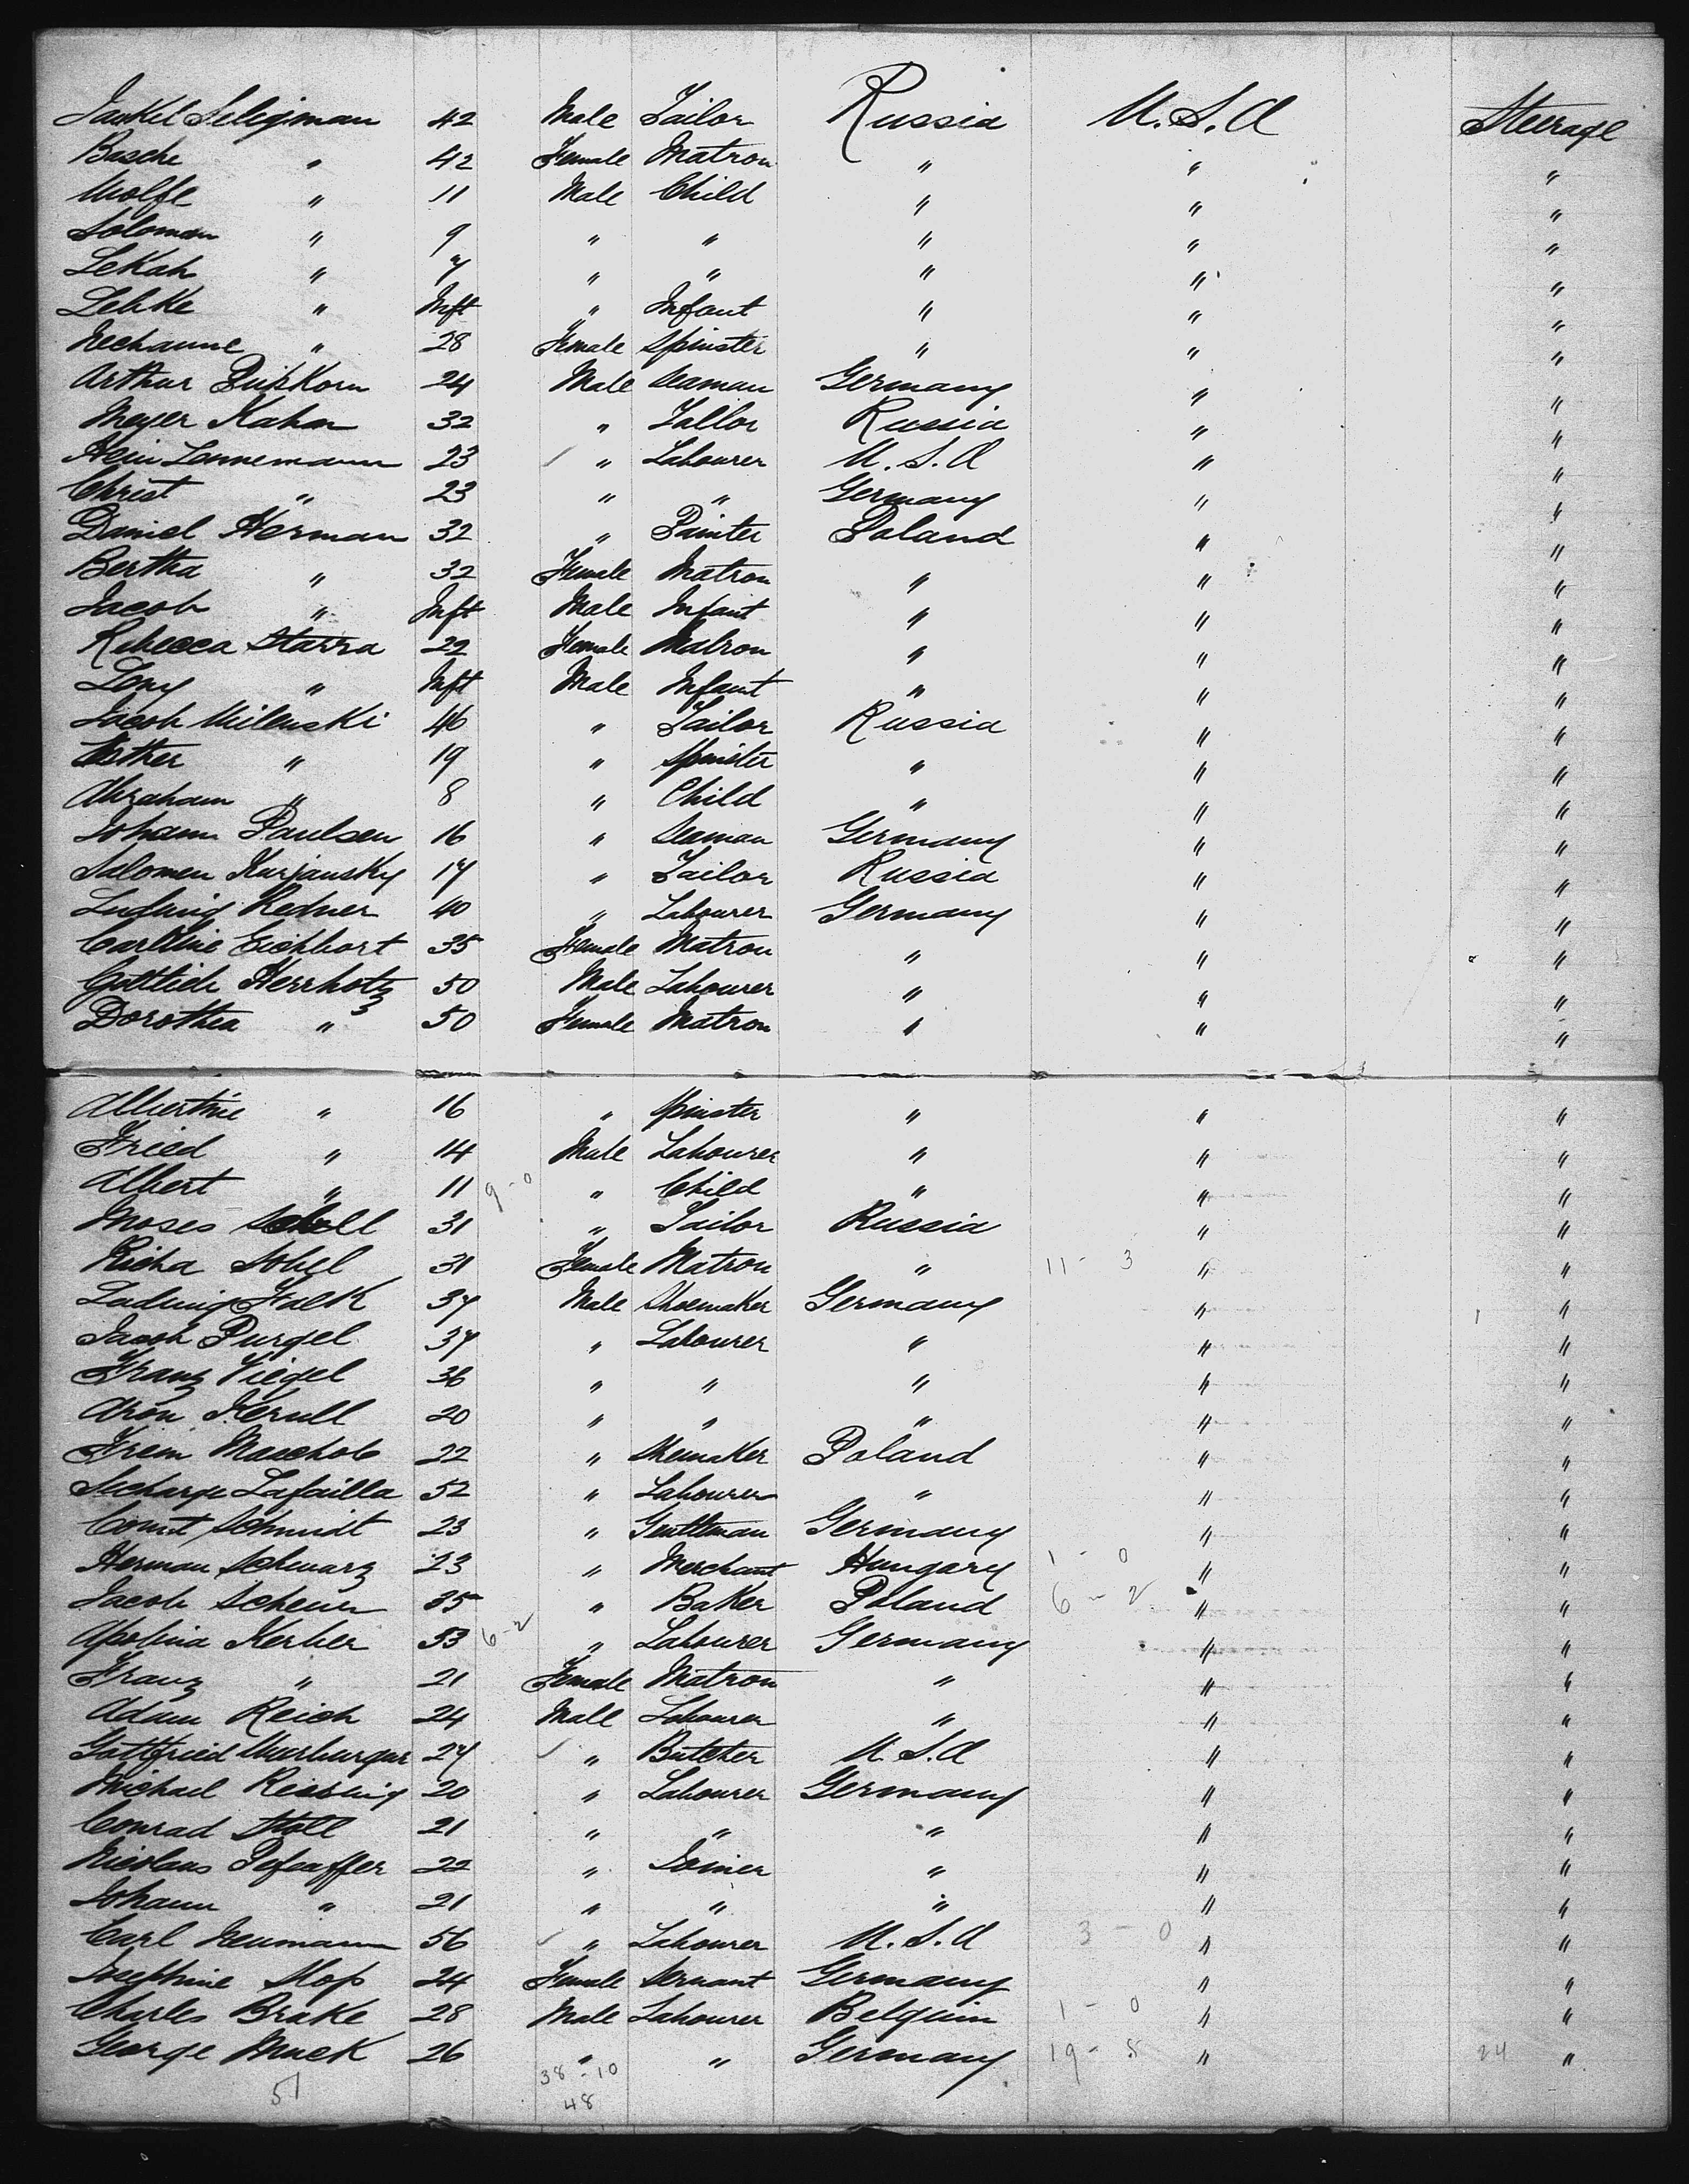 Jankel Seligman 42 Male Tailor Russia U.S.A Steerage
Basche " 42 Female Matron " " "
Wolfe " 11 Male Child " " "
Soloman " 9 " " " " "
Lekah " 7 " " " " "
Lebke " Inft " Infant " " "
Nechanne " 28 Female Spinster " " "
Arthur 24 Male Seaman Germany " "
Meyer Kahan 32 " Tailor Russia " "
Hein Lennemann 23 " Labourer U.S.A " "
Christ " 23 " " Germany " "
Daniel Herman 32 " Painter Poland " "
Bertha " 32 Female Matron " " "
Jacob " Inft Male Infant " " "
Rebecca Starra 22 Female Matron " " "
Leny " Inft Male Infant " " "
Jacob Wilenski 46 " Tailor Russia " "
Esther " 19 " Spinster " " "
Abraham " 8 " Child " " "
Johann Paulsen 16 " Seaman Germany " "
Salomen Kurjansky 17 " Tailor Russia " "
Ludwig Redner 40 " Labourer Germany " "
Carlline Eichhort 35 Female Matron " " "
Gottlieb Herrholtz 50 Male Labourer " " "
Dorothea " 50 Female Matron " " "
Albertine " 16 " Spinster " " "
Fried " 14 Male Labourer " " "
Albert " 11 9-0 " Child " " "
Moses 31 " Tailor Russia " "
Richa Sobel 31 Female Matron " 11-3 " "
Ludwig Falk 37 Male Shoemaker Germany " "
Jacob Purgel 37 " Labourer " " "
Franz Viegel 36 " " " " "
Aron Kerull 20 " " " " "
Maschob 22 " Shemaker Poland " "
Lafailla 52 " Labourer " " "
Count Schmidt 23 " Gentleman Germany " "
Herman Schwarz 23 " Merchant Hungary 1-0 " "
Jacob Scheuer 35 " Baker Poland 6-2 " "
Apolina Kerber 53 6-2 " Labourer Germany " "
Franz " 21 Female Matron " " "
Adam Reich 24 Male Labourer " " "
Gottfried Wurburgur 27 " Butcher U.S.A " "
Michael Reissing 20 " Labourer Germany " "
Conrad Stoll 21 " " " " "
Nicolaus Pefeaffer 22 " Joiner " " "
Johann " 21 " " " " "
Carl Neumann 56 " Labourer U.S.A 3-0 " "
Josephine Stop 24 Female Servant Germany " "
Charles Brake 28 Male Labourer Belgium 1-0 " "
George Muck 26 " " Germany 19-8 " 24 "
51 38-10
48